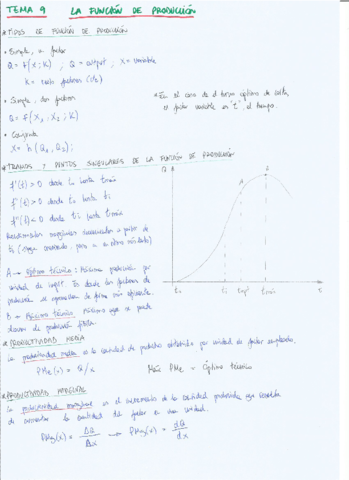 TEMA 9 LA FUNCIÓN DE PRODUCCIÓN
* TIPOS DE FUNCIÓN DE PRODUCCIÓN
• Simple, un factor
Q = f(x; K) ; Q = output ; X = variable
K = resto factores
• Simple, dos factores
Q = f(X₁, X₂; K)
• Conjunta
X = h(Q₁, Q₂);
* En el caso de el turno óptimo de corta,
el factor variable es "t", el tiempo.
* TRAMOS Y PUNTOS SINGULARES DE LA FUNCIÓN DE PRODUCCIÓN
f'(t) > 0 desde t₀ hasta tmáx
f''(t) > 0 desde t₀ hasta ti
f''(t) < 0 desde ti hasta tmáx
Rendimientos marginales a partir de
ti (sigue creciendo, pero a un ritmo)
A → Óptimo técnico: Máxima producción por
unidad de input. Es donde los factores de
producción se de forma más eficiente.
B → Máximo técnico: Máximo que se puede
de producción física.
Q
A
B
t₀
ti
tmáx
* PRODUCTIVIDAD MEDIA
La productividad media es la cantidad de producto obtenido por unidad de factor empleado.
PMe(x) = Q/x
Máx PMe = Óptimo técnico
* PRODUCTIVIDAD MARGINAL
La productividad marginal es el incremento de la cantidad producida que resulta
de aumentar la cantidad del factor en una unidad.
PMg(x) = ΔQ/Δx → PMg(x) = dQ/dx